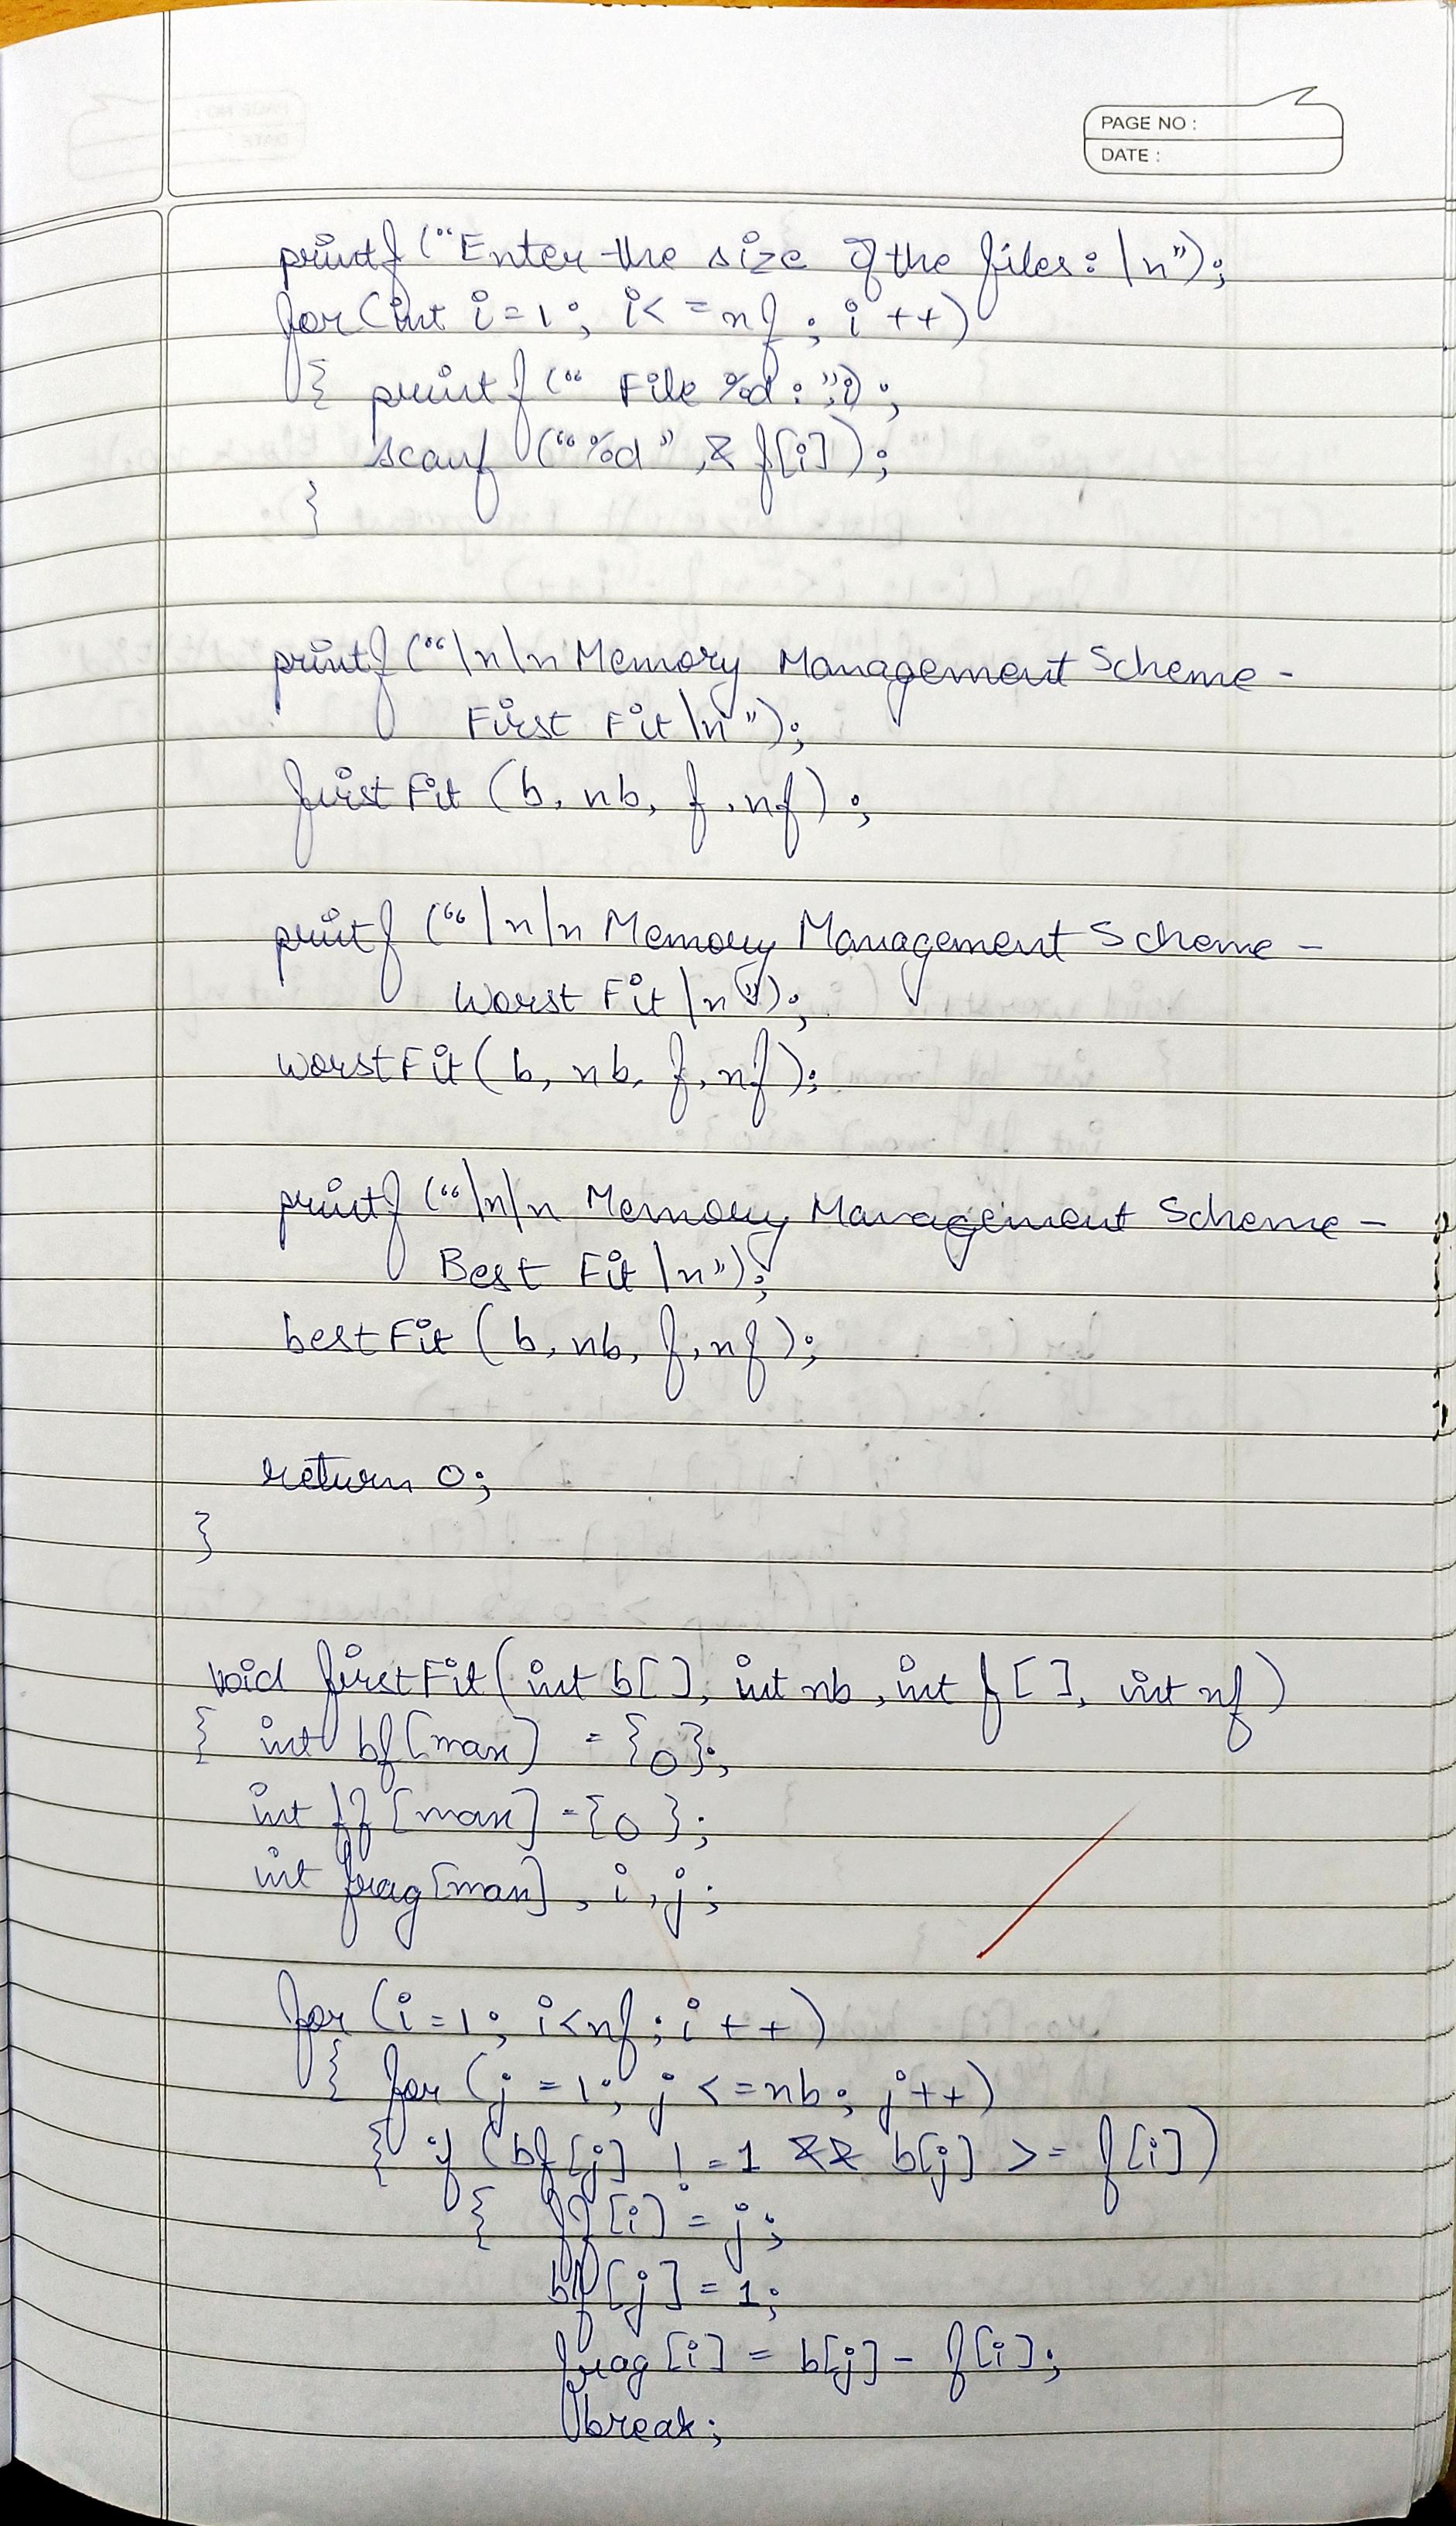 PAGE NO :
DATE :
printf ("Enter the size of the files: \n");
for (int i = 1; i < = nf ; i ++)
{ printf (" File %d : ", i) ;
scanf ("%d" , & f[i] ) ;
}
printf ("\n\n Memory Management Scheme -
First Fit \n ");
firstFit (b, nb, f, nf) ;
printf ("\n\n Memory Management Scheme -
Worst Fit \n ");
worstFit ( b, nb, f, nf );
printf ("\n\n Memory Management Scheme -
Best Fit \n");
bestFit ( b, nb, f, nf );
return 0;
}
void firstFit ( int b[ ], int nb, int f [ ], int nf )
{ int bf [max] = {0};
int ff [max] = {0 };
int frag [max] , i , j ;
for ( i = 1 ; i < nf ; i + + )
{ for ( j = 1; j < = nb ; j ++ )
{ if ( bf [j] ! = 1 && b[j] > = f [i] )
{ ff [i] = j ;
bf [j] = 1;
frag [i] = b[j] - f [i] ;
break ;